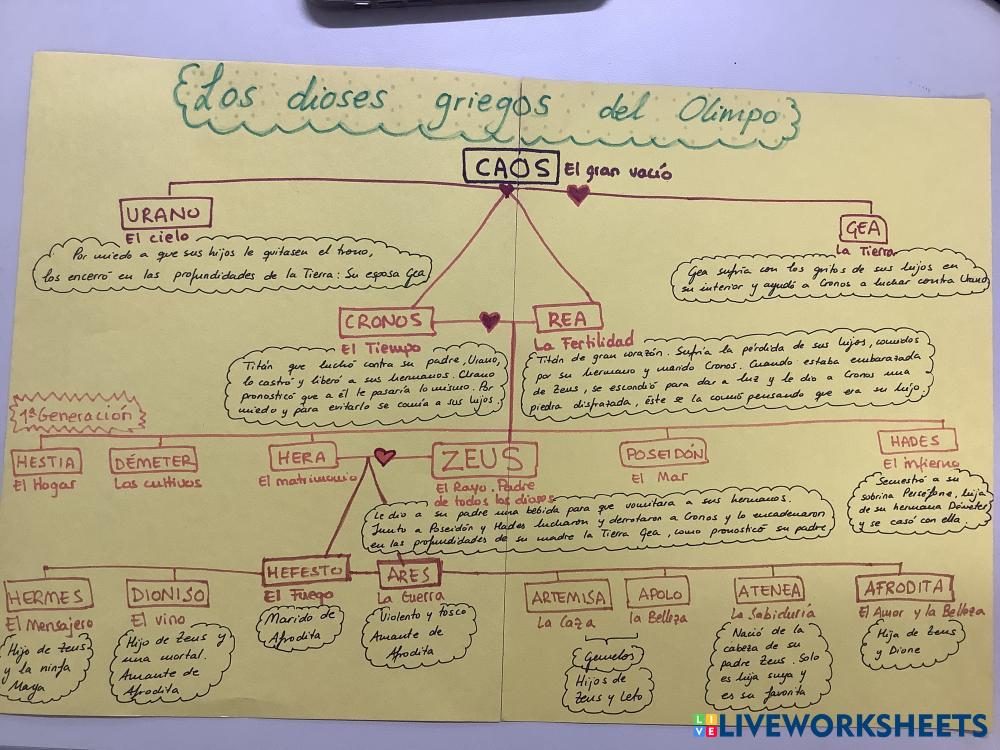 Los dioses griegos del Olimpo
CAOS El gran vacío
URANO
El cielo
Por miedo a que sus hijos le quitasen el trono,
los encerró en las profundidades de la Tierra: Su esposa Gea
GEA
La Tierra
Gea sufría con los gritos de sus hijos en
su interior y ayudó a Cronos a luchar contra Urano
CRONOS
El Tiempo
Titán que luchó contra su padre, Urano,
lo castró y liberó a sus hermanos. Urano
pronosticó que a él le pasaría lo mismo. Por
miedo y para evitarlo se comía a sus hijos.
REA
La Fertilidad
Titán de gran corazón. Sufría la pérdida de sus hijos, comidos
por su hermano y marido Cronos. Cuando estaba embarazada
de Zeus, se escondió para dar a luz y le dio a Cronos una
piedra disfrazada, éste se la comió pensando que era su hijo.
1ª Generación
HESTIA
El Hogar
DÉMETER
Los cultivos
HERA
El matrimonio
ZEUS
El Rayo. Padre
de todos los dioses
POSEIDÓN
El Mar
HADES
El infierno
Secuestró a su
sobrina Perséfone, hija
de su hermana Deméter
y se casó con ella.
Le dio a su padre una bebida para que vomitara a sus hermanos.
Junto a Poseidón y Hades lucharon y derrotaron a Cronos y lo encadenaron
en las profundidades de su madre la Tierra Gea, como pronosticó su padre
HERMES
El Mensajero
Hijo de Zeus
y la ninfa
Maya
DIONISO
El vino
Hijo de Zeus y
una mortal.
Amante de
Afrodita
HEFESTO
El Fuego
Marido de
Afrodita
ARES
La Guerra
Violento y tosco
Amante de
Afrodita
ARTEMISA
La Caza
APOLO
la Belleza
Gemelos
Hijos de
Zeus y Leto
ATENEA
La Sabiduría
Nació de la
cabeza de su
padre Zeus. Solo
es hija suya y
es su favorita
AFRODITA
El Amor y la Belleza
Hija de Zeus
y Dione
LIVEWORKSHEETS